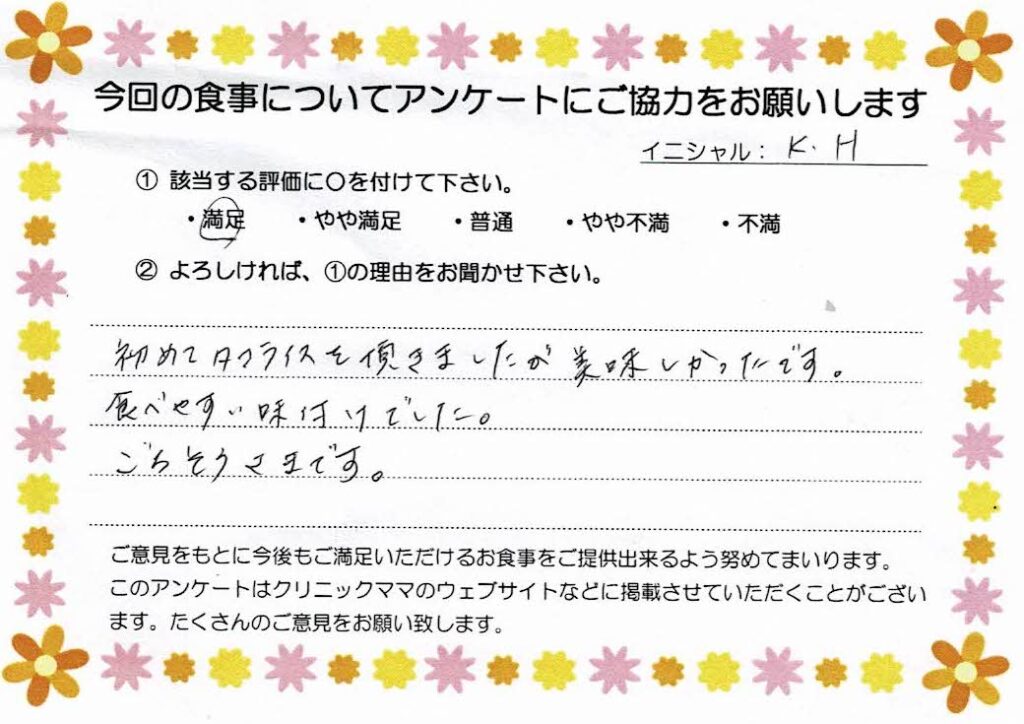 今回の食事についてアンケートにご協力をお願いします
イニシャル： K. H
① 該当する評価に○を付けて下さい。
・満足 ・やや満足 ・普通 ・やや不満 ・不満
② よろしければ、①の理由をお聞かせ下さい。
初めてタコライスを頂きましたが美味しかったです。
食べやすい味付けでした。
ごちそうさまです。
ご意見をもとに今後もご満足いただけるお食事をご提供出来るよう努めてまいります。
このアンケートはクリニックママのウェブサイトなどに掲載させていただくことがござい
ます。たくさんのご意見をお願い致します。